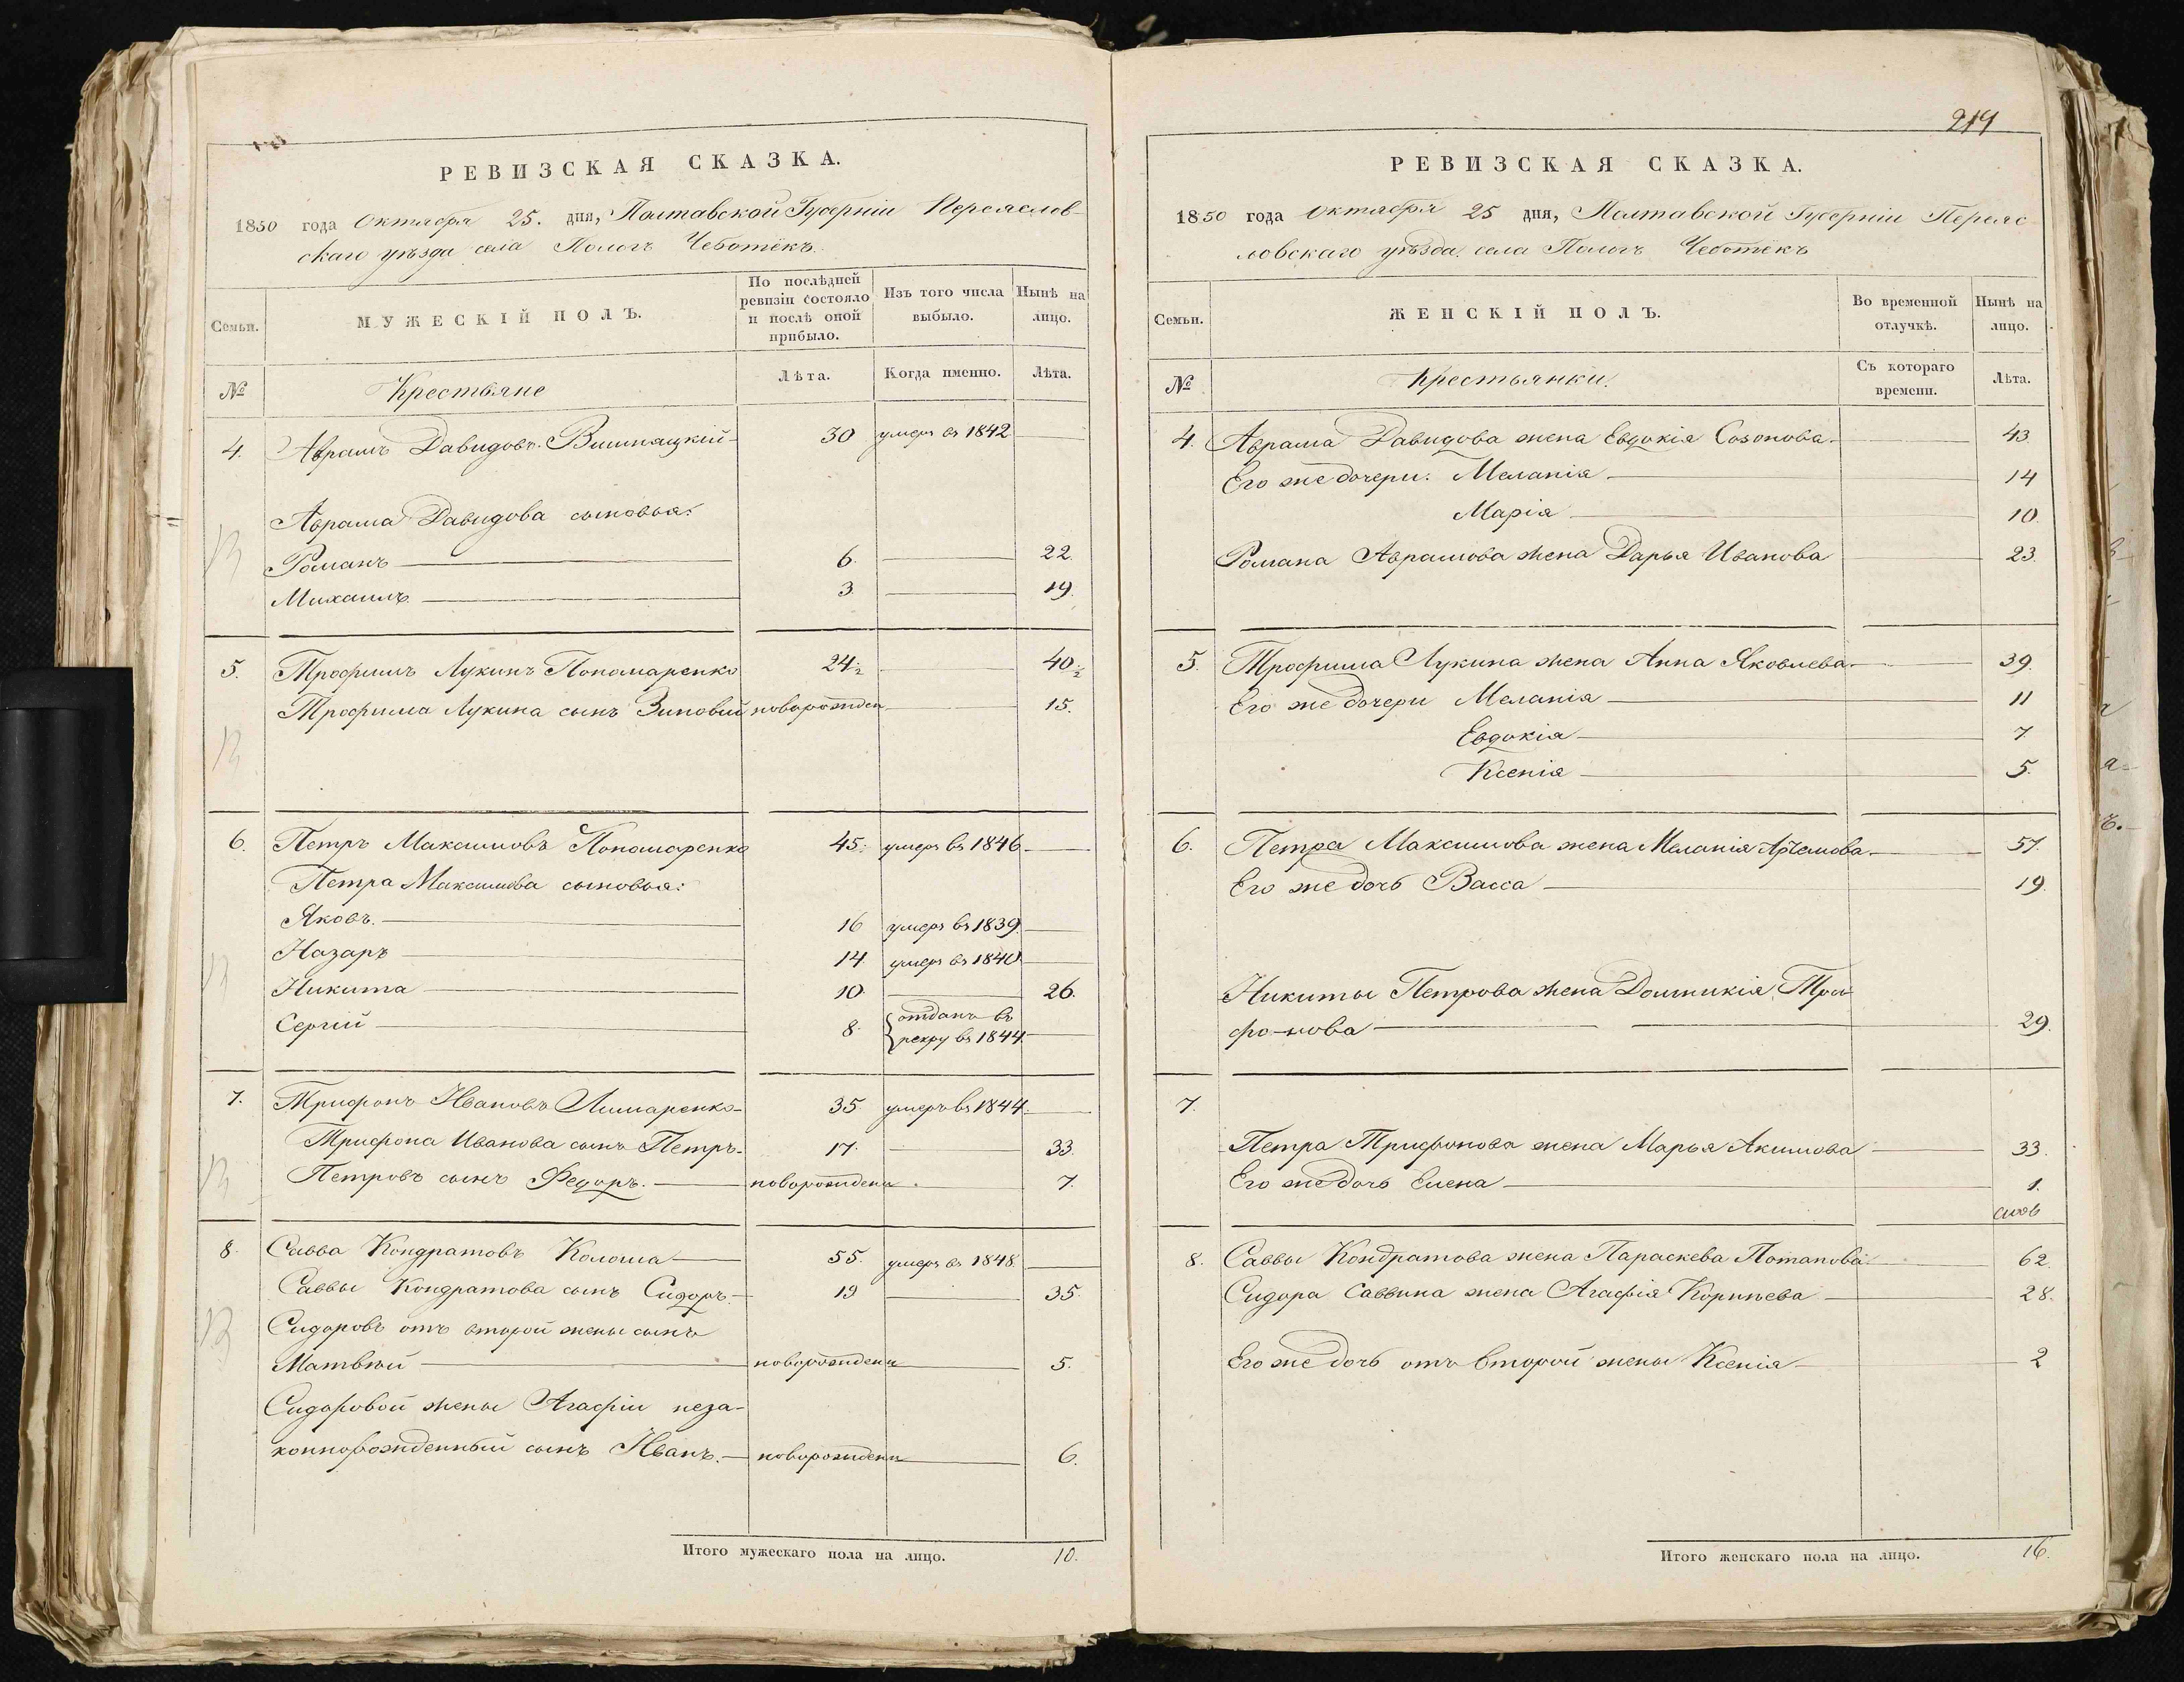 РЕВИЗСКАЯ СКАЗКА.
1850 года Октября 25. дня, Полтавской Губерніи Переяслов-
скаго уѣзда села Пологъ Чеботёкъ.
Семьи.
МУЖЕСКІЙ ПОЛЪ.
По послѣдней ревизіи состояло и послѣ оной прибыло.
Изъ того числа выбыло.
Нынѣ на лицо.
№
Крестьяне
Лѣта.
Когда именно.
Лѣта.
4. Аврамъ Давидовъ Вишняцкій 30 умеръ въ 1842
Аврама Давидова сыновья:
Романъ 6. 22.
Михаилъ 3 19.
5. Трофимъ Лукинъ Пономаренко 24½ 40½
Трофима Лукина сынъ Зиновій новорожден 15.
6. Петръ Максимовъ Пономаренко 45. умеръ въ 1846
Петра Максимова сыновья:
Яковъ. 16 умеръ въ 1839.
Назаръ 14. умеръ въ 1840
Никита 10. 26.
Сергій 8. отданъ въ
рекру въ 1844.
7. Трифонъ Ивановъ Лимаренко 35 умеръ въ 1844.
Трифона Иванова сынъ Петръ. 17. 33.
Петровъ сынъ Федоръ. новорожденъ 7.
8. Савва Кондратовъ Колоша 55. умеръ въ 1848.
Саввы Кондратова сынъ Сидоръ. 19 35.
Сидоровъ отъ второй жены сынъ
Матвѣй новорожденъ 5.
Сидоровой жены Агафіи неза-
коннорожденный сынъ Иванъ. новорожденъ 6.
Итого мужескаго пола на лицо. 10.
219
РЕВИЗСКАЯ СКАЗКА.
1850 года Октября 25 дня, Полтавской Губерніи Переяс
ловскаго уѣзда села Пологъ Чеботёкъ
Семьи.
ЖЕНСКІЙ ПОЛЪ.
Во временной отлучкѣ.
Нынѣ на лицо.
№
Крестьянки.
Съ котораго времени.
Лѣта.
4. Аврама Давидова жена Евдокія Созонова 43
Его же дочери: Меланія 14
Марія 10.
Романа Аврамова жена Дарья Иванова 23.
5. Трофима Лукина жена Анна Яковлева 39.
Его же дочери Меланія 11
Евдокія 7.
Ксенія 5.
6. Петра Максимова жена Меланія Артемова 57.
Его же дочь Васса 19.
Никиты Петрова жена Домникія Три
фонова 29.
7.
Петра Трифонова жена Марья Акимова 33.
Его же дочь Елена 1.
8. Саввы Кондратова жена Параскева Потапова 62.
Сидора Саввина жена Агафія Корнѣева 28.
Его же дочь отъ второй жены Ксенія 2
Итого женскаго пола на лицо. 16.